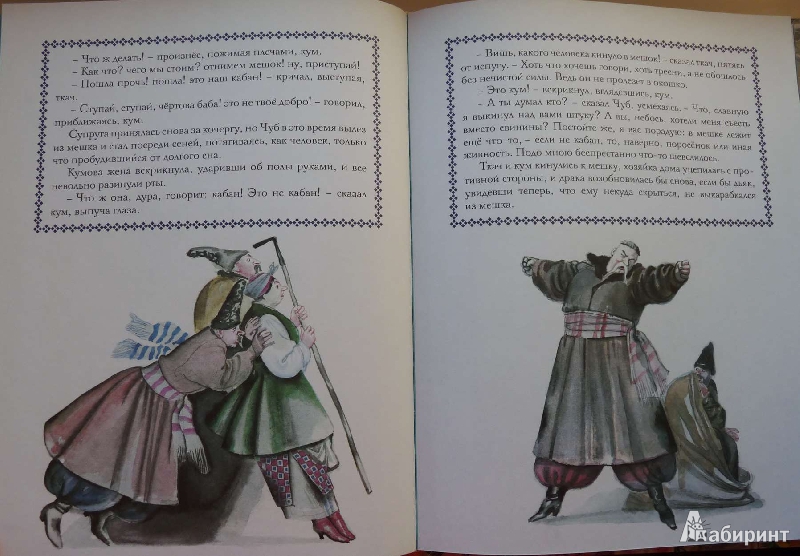 – Что ж делать! – произнёс, пожимая плечами, кум.
– Как что? чего мы стоим? отнимем мешок! ну, приступай!
– Пошла прочь! пошла! это наш кабан! – кричал, выступая,
ткач.
– Ступай, ступай, чёртова баба! это не твоё добро! – говорил,
приближаясь, кум.
Супруга принялась снова за кочергу, но Чуб в это время вылез
из мешка и стал посреди сеней, потягиваясь, как человек, только
что пробудившийся от долгого сна.
Кумова жена вскрикнула, ударивши об полы руками, и все
невольно разинули рты.
– Что ж она, дура, говорит: кабан! Это не кабан! – сказал
кум, выпуча глаза.
– Вишь, какого человека кинуло в мешок! – сказал ткач, пятясь
от испугу. – Хоть что хочешь говори, хоть тресни, а не обошлось
без нечистой силы. Ведь он не пролезет в окошко.
– Это кум! – вскрикнул, вглядевшись, кум.
– А ты думал кто? – сказал Чуб, усмехаясь. – Что, славную
я выкинул над вами штуку? А вы, небось, хотели меня съесть
вместо свинины? Постойте же, я вас порадую: в мешке лежит
ещё что-то, – если не кабан, то, наверно, поросёнок или иная
живность. Подо мною беспрестанно что-то шевелилось.
Ткач и кум кинулись к мешку, хозяйка дома уцепилась с про-
тивной стороны, и драка возобновилась бы снова, если бы дьяк,
увидевши теперь, что ему некуда скрыться, не выкарабкался
из мешка.
Лабиринт